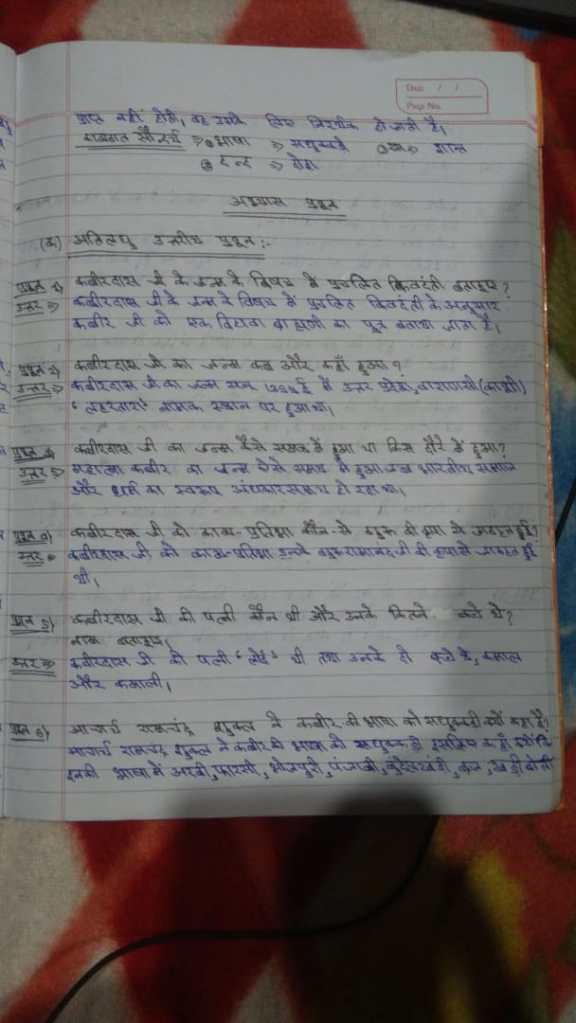 Date / /
Page No.
प्राप्त नहीं होती, वह उसके लिए निरर्थक हो जाती है।
काव्यगत सौन्दर्य ⇒ ① भाषा ⇒ सधुक्कड़ी ② रस ⇒ शान्त
③ छन्द ⇒ दोहा
अभ्यास प्रश्न
(क) अतिलघु उत्तरीय प्रश्न :-
प्रश्न 1) कबीरदास जी के जन्म के विषय में प्रचलित किवदंती बताइए ?
उत्तर ⇒ कबीरदास जी के जन्म के विषय में प्रचलित किवदंती के अनुसार
कबीर जी को एक विधवा ब्राह्मणी का पुत्र बताया जाता है।
प्रश्न 2) कबीरदास जी का जन्म कब और कहाँ हुआ ?
उत्तर ⇒ कबीरदास जी का जन्म सन् ई में उत्तर प्रदेश, वाराणसी (काशी)
'लहरतारा' नामक स्थान पर हुआ था।
प्रश्न कबीरदास जी का जन्म कैसे समय में हुआ था किस दौर में हुआ?
उत्तर ⇒ महात्मा कबीर का जन्म ऐसे समय में हुआ जब भारतीय समाज
और धर्म का स्वरूप अंधकारमय हो रहा था।
प्रश्न कबीरदास जी को काव्य-प्रतिभा कौन-से गुरू की कृपा से प्राप्त हुई?
उत्तर कबीरदास जी को काव्य-प्रतिभा उनके गुरू रामानंद जी की कृपा से प्राप्त हुई
थी।
प्रश्न 5) कबीरदास जी की पत्नी कौन थी और उनके कितने बच्चे थे?
नाम बताइए।
उत्तर ⇒ कबीरदास जी की पत्नी 'लोई' थी तथा उनके दो बच्चे थे, कमाल
और कमाली।
प्रश्न 6) आचार्य रामचंद्र शुक्ल ने कबीर की भाषा को सधुक्कड़ी क्यों कहा है?
आचार्य रामचंद्र शुक्ल ने कबीर की भाषा को सधुक्कड़ी इसलिए कहा क्योंकि
इनकी भाषा में अरबी, फारसी, भोजपुरी, पंजाबी, बुंदेलखंडी, ब्रज, खड़ी बोली